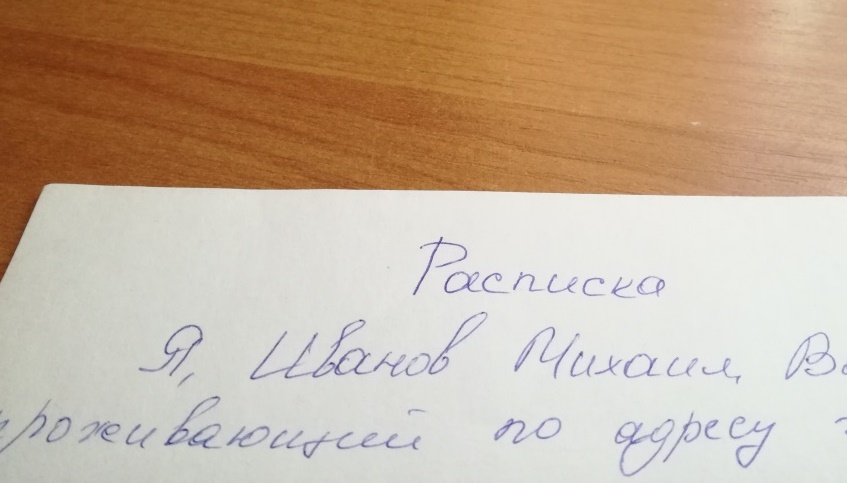 Расписка
Я, Иванов Михаил
проживающий по адресу